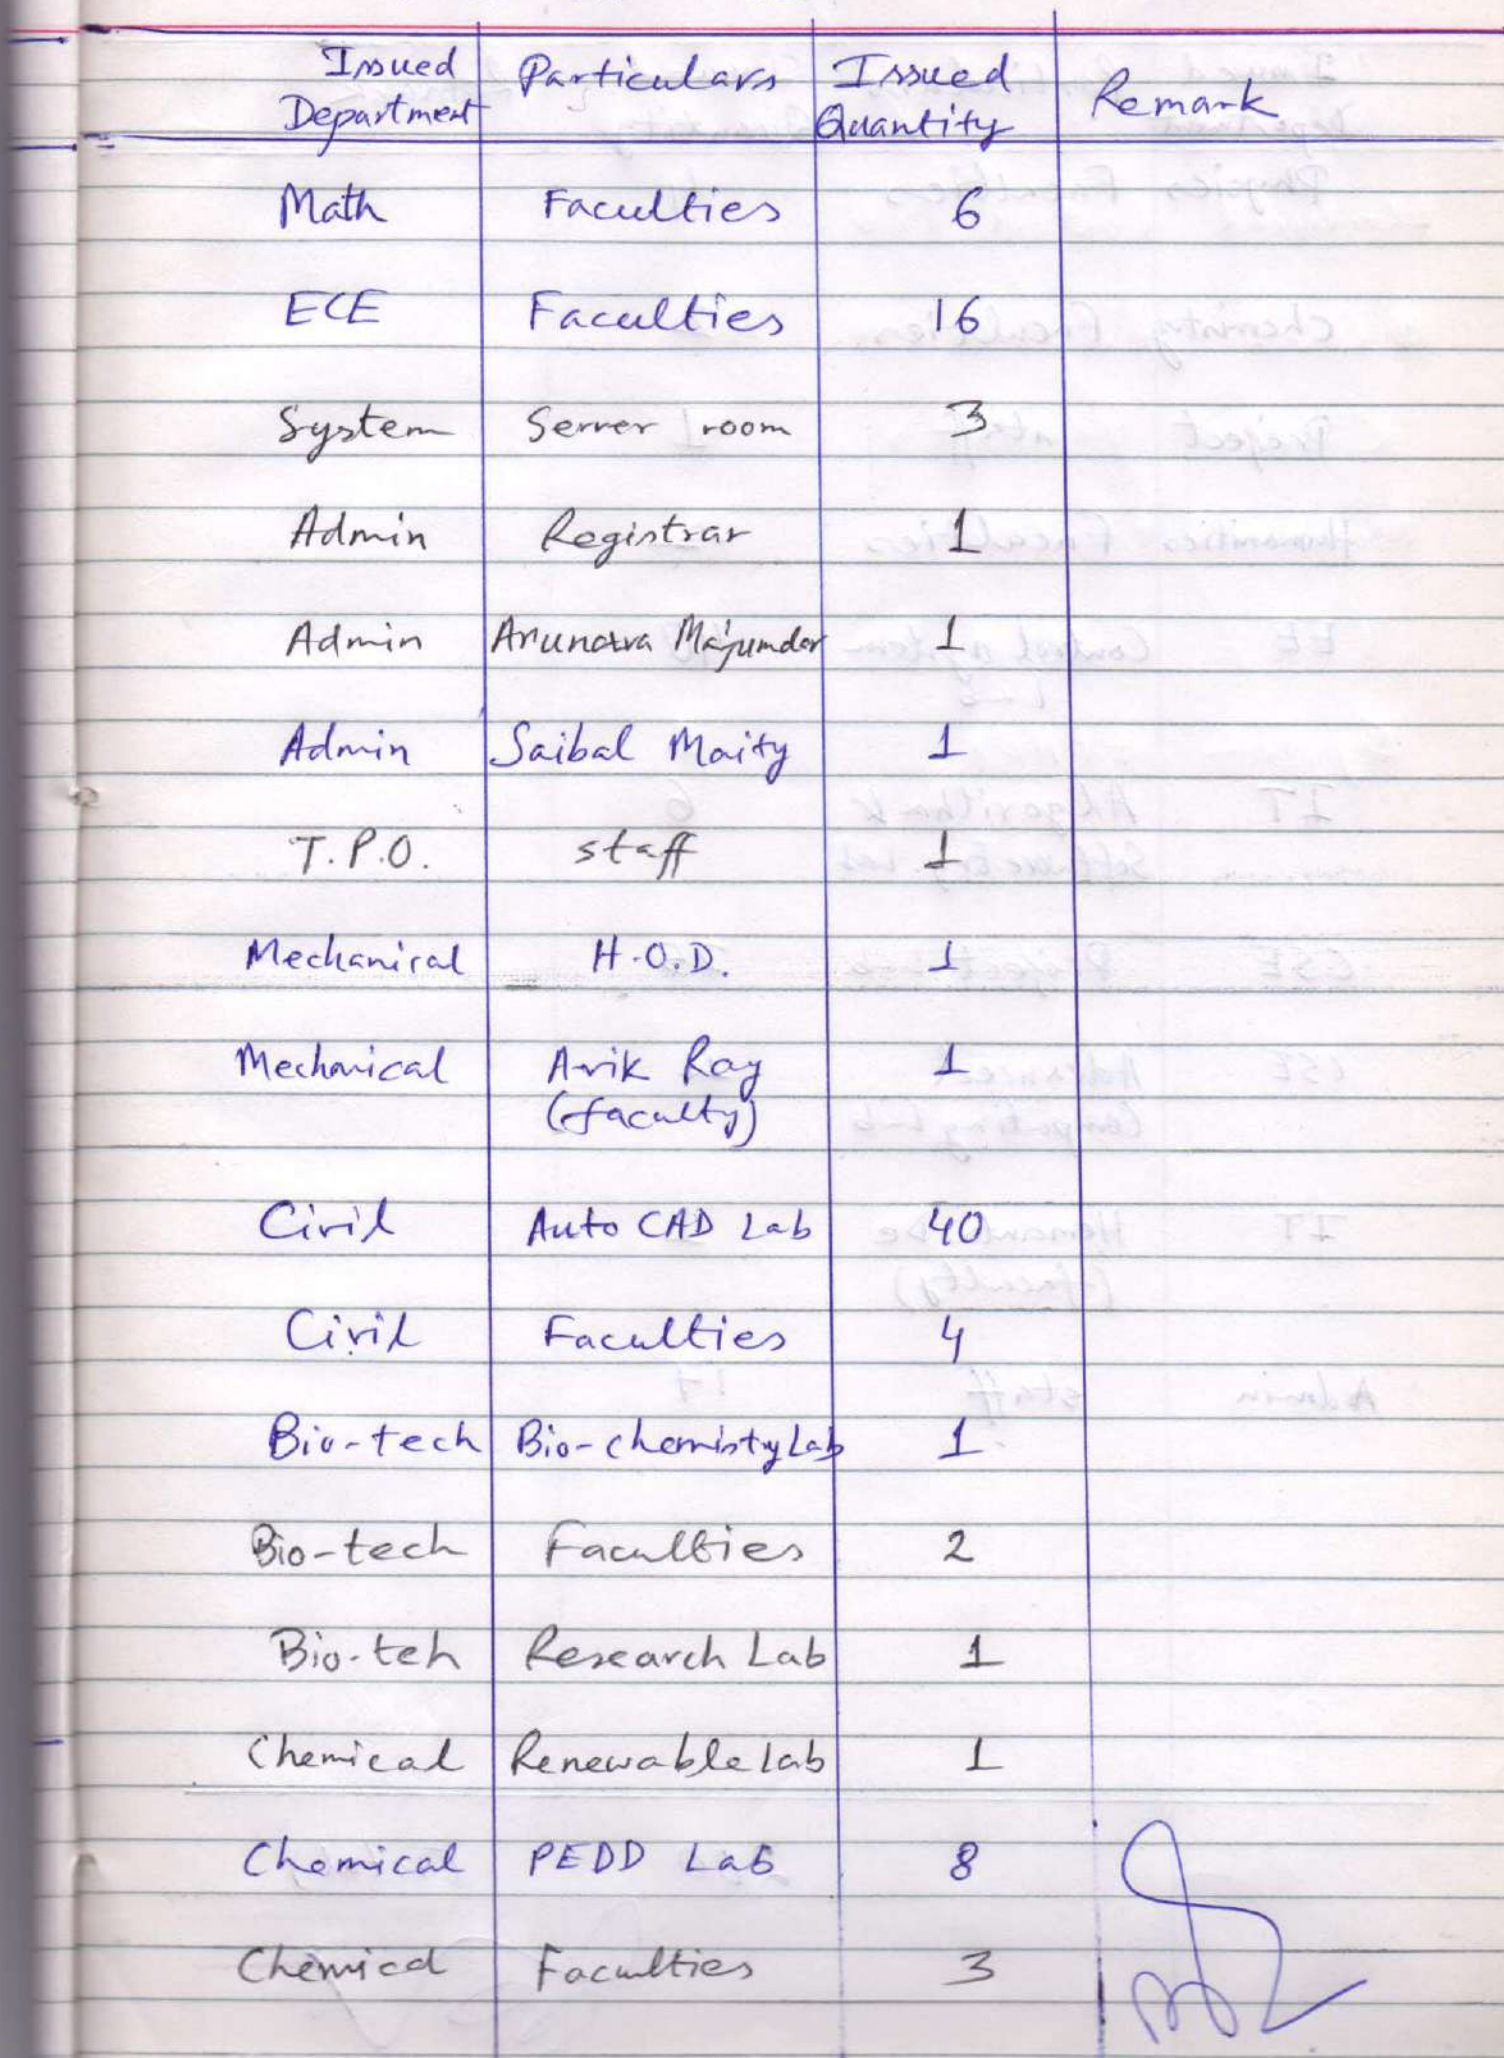 Issued Department Particulars Issued Quantity Remark
Math Faculties 6
ECE Faculties 16
System Server room 3
Admin Registrar 1
Admin Majumdar 1
Admin Saibal Maity 1
T.P.O. staff 1
Mechanical H.O.D. 1
Mechanical Avik Roy 1
(faculty)
Civil Auto CAD Lab 40
Civil Faculties 4
Bio-tech Bio-chemisty Lab 1
Bio-tech Faculties 2
Bio-teh Research Lab 1
Chemical Renewable Lab 1
Chemical PEDD Lab 8
Chemical Faculties 3